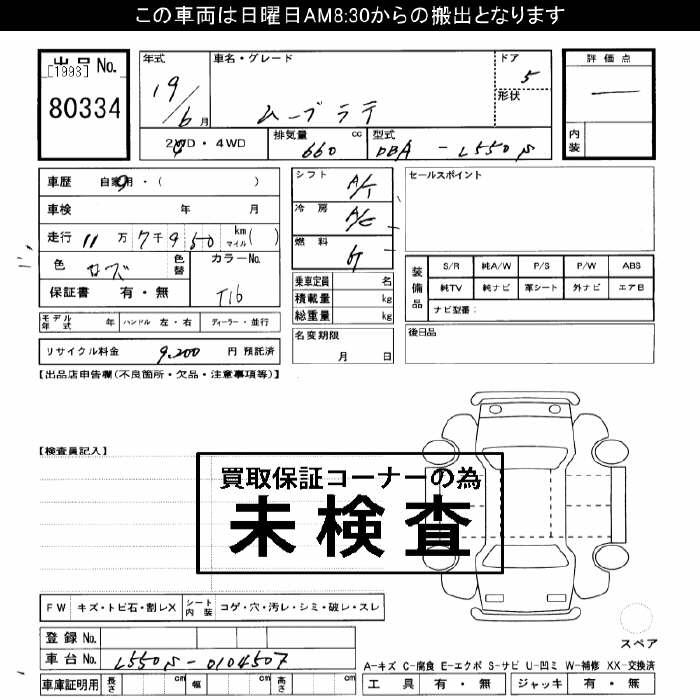 この車両は日曜日AM8:30からの搬出となります
出品No.
[1993]
80334
年式
19/6月
車名・グレード
ムーブラテ
ドア
5
形状
評価点
内装
2WD・4WD
排気量 660 cc
型式 DBA-L550S
車歴 自家用・( )
車検 年 月
走行 11万7千950 km マイル( )
色
色替
カラーNo.
T16
保証書 有・無
モデル年式 年 ハンドル 左・右 ディーラー・並行
リサイクル料金 9,200 円 預託済
シフト A/T
冷房 A/C
燃料
乗車定員 名
積載量 kg
総重量 kg
名変期限
月 日
セールスポイント
装備品
S/R 純A/W P/S P/W ABS
純TV 純ナビ 革シート 外ナビ エアB
ナビ型番:
後日品
【出品店申告欄(不良箇所・欠品・注意事項等)】
【検査員記入】
買取保証コーナーの為
未検査
FW キズ・トビ石・割レX シート内装 コゲ・穴・汚レ・シミ・破レ・スレ
登録No.
車台No. L550S-0104507
車庫証明用 長さ cm 幅 cm 高さ cm
スペア
A-キズ C-腐食 E-エクボ S-サビ U-凹ミ W-補修 XX-交換済
工具 有・無 ジャッキ 有・無